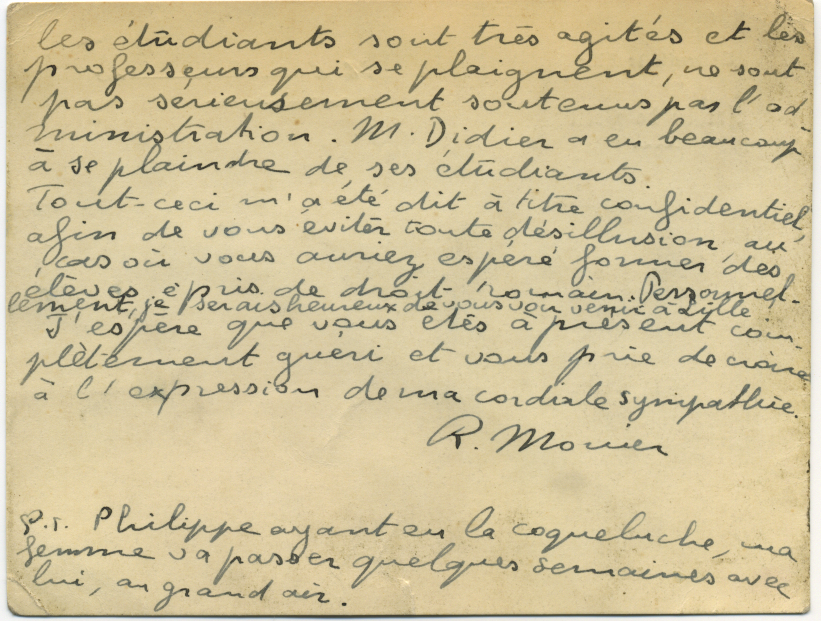 les étudiants sont très agités et les
professeurs qui se plaignent, ne sont
pas sérieusement soutenus par l'ad
ministration. M. Didier a eu beaucoup
à se plaindre de ses étudiants.
Tout-ceci m'a été dit à titre confidentiel,
afin de vous éviter toute désillusion au
cas où vous auriez espéré former des
élèves épris de droit romain. Personnel-
lement, je serais heureux de vous voir venir à Lille
J'espère que vous etês à présent com-
plètement guéri et vous prie de croire
à l'expression de ma cordiale sympathie.
R. Monier
P.S. Philippe ayant eu la coqueluche, ma
femme va passer quelques semaines avec
lui, au grand air.